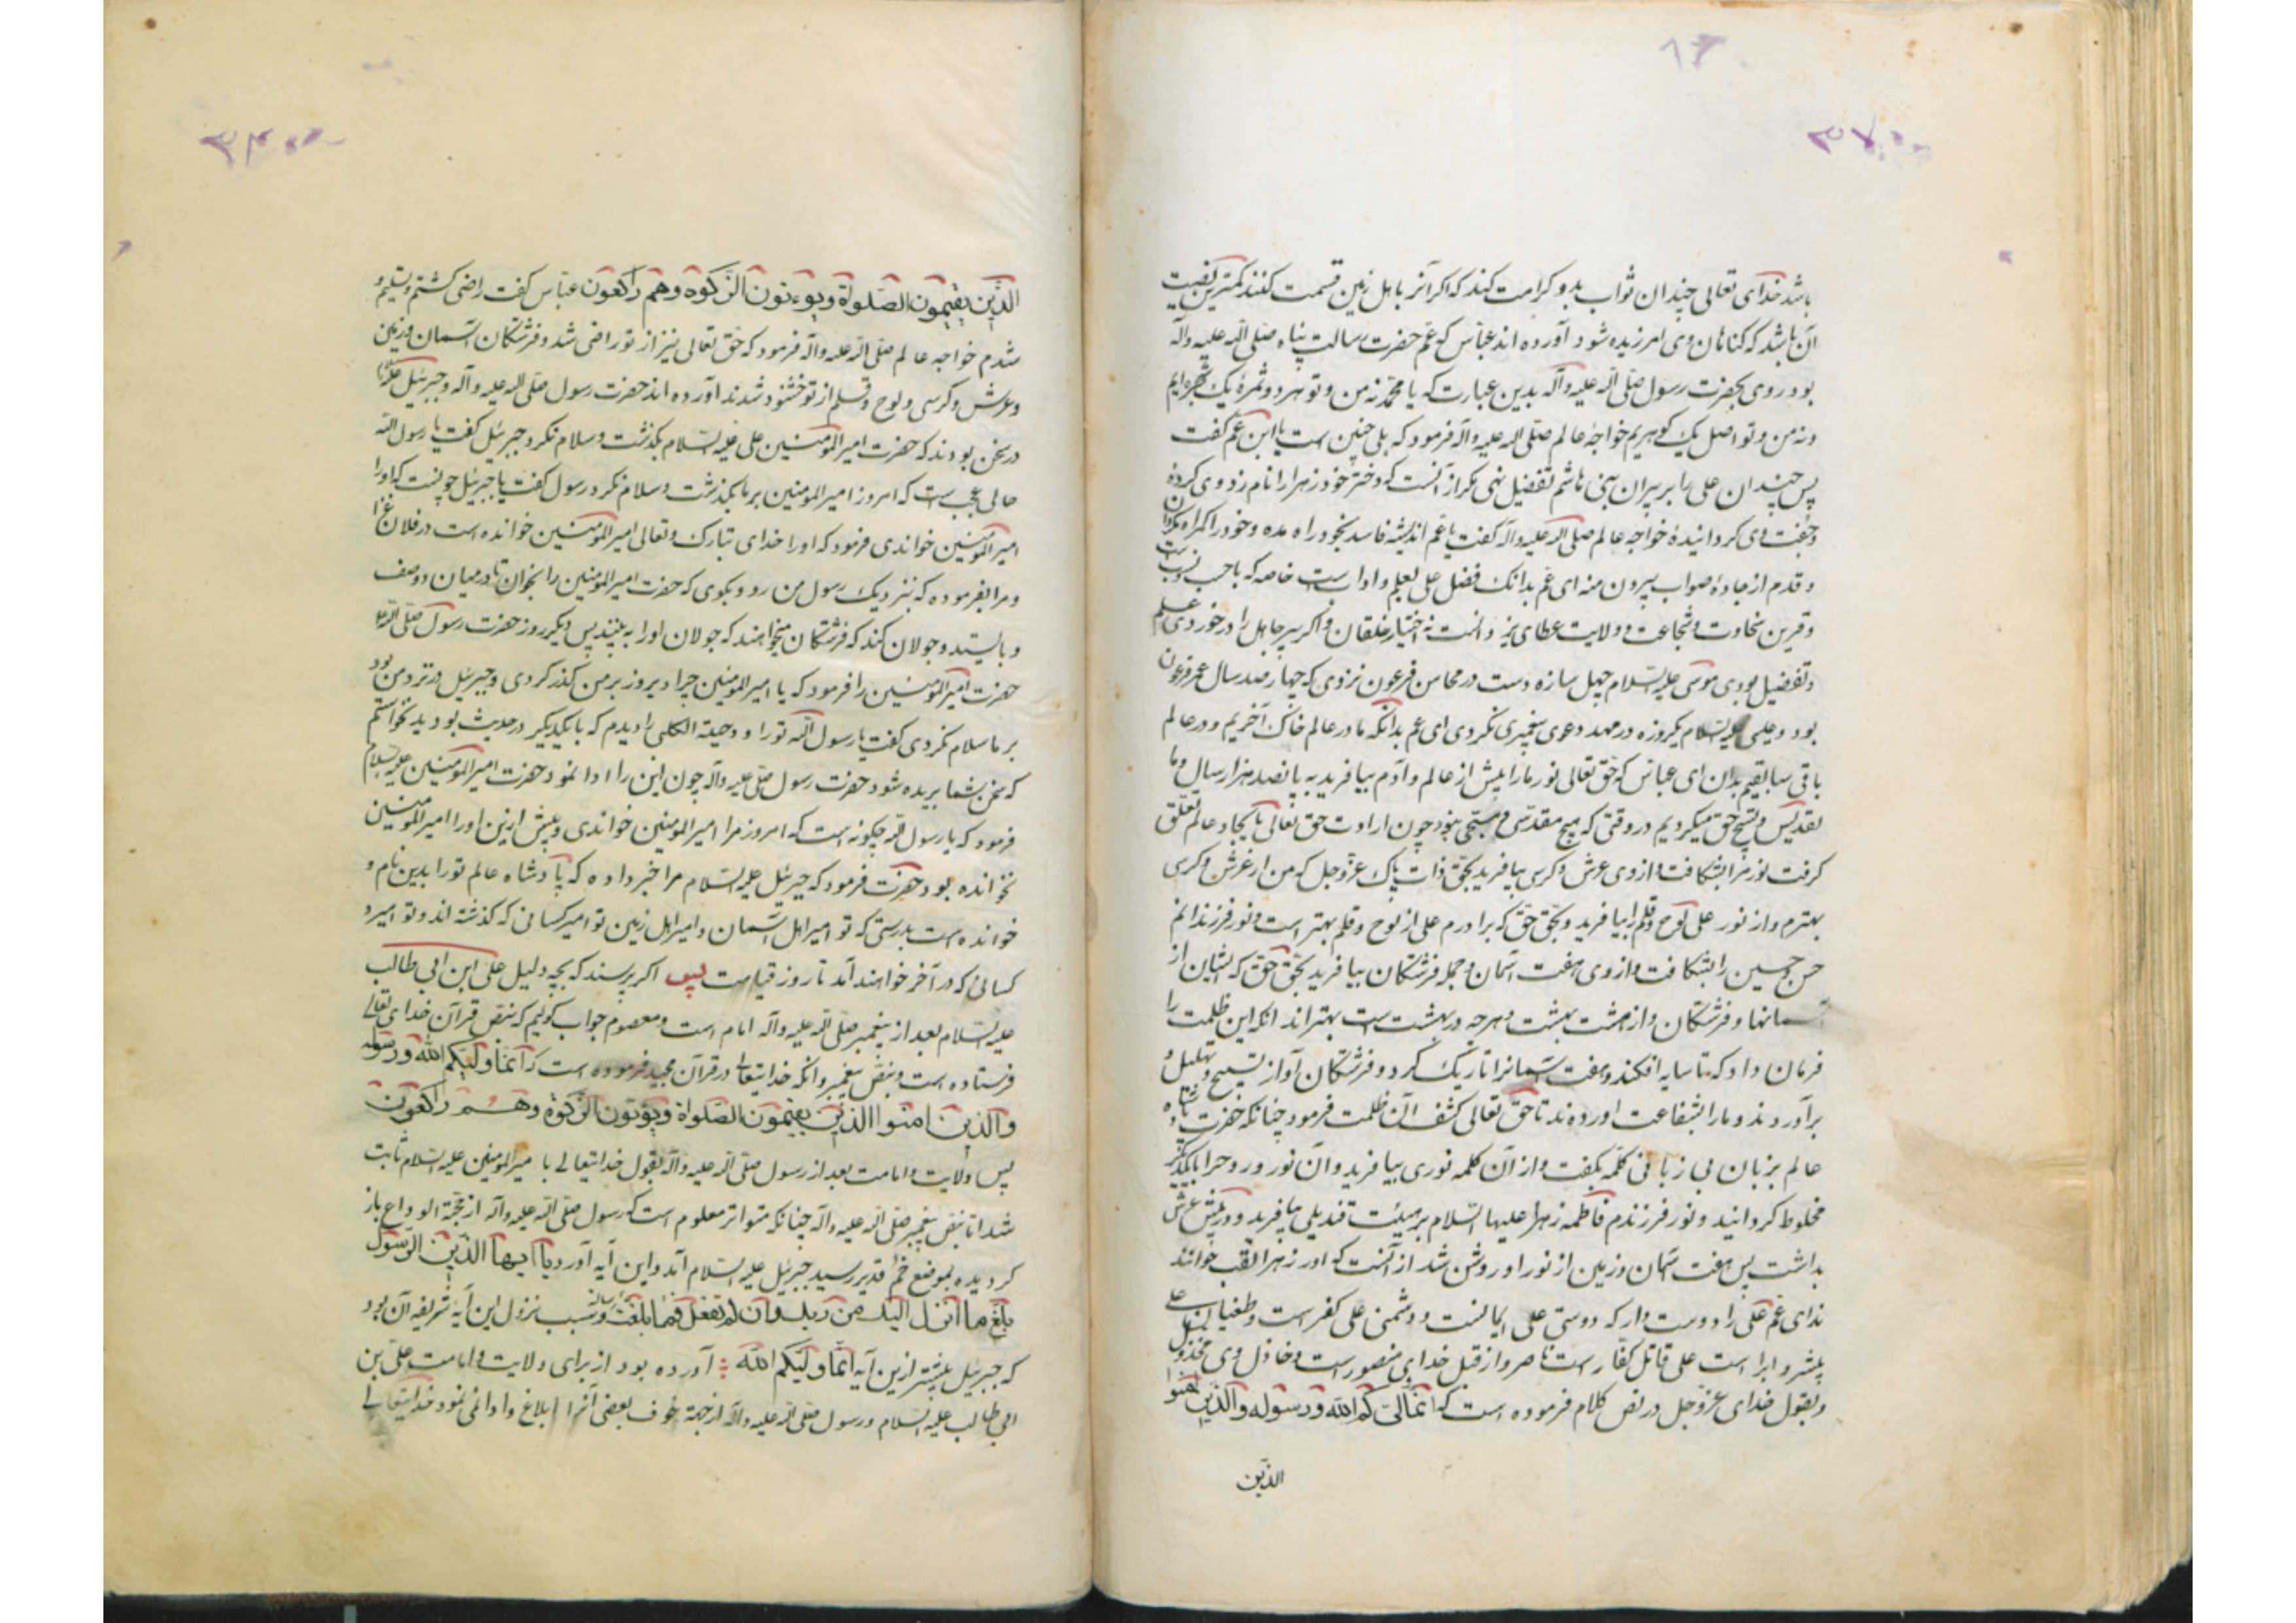 باشد خدای تعالی چندان ثواب بدو کرامت کند که اکر آنرا باهل زمین قسمت کنند کمترین نصیب
آن باشد که کناهان وی امرزیده شود آورده اند عباس که عم حضرت رسالت پناه صلی الله علیه وآله
بود روی بحضرت رسول صلی الله علیه وآله بدین عبارت که یا محمد نه من وتو هر دو ثمرهٔ یک شجره ایم
ونه من وتو اصل یک کوهریم خواجهٔ عالم صلی الله علیه وآله فرمود که بلی چنین است یا ابن عم کفت
پس چندان علی را بر پیران بنی هاشم تفضیل نهی مکر از آنست که دختر خود زهرا را نام زد وی کردهٔ
وجفت وی کردانیدهٔ خواجه عالم صلی الله علیه وآله کفت یا عم اندیشه فاسد بخود راه مده وخود را کمراه
وقدم از جادهٔ صواب بیرون منه ای عم بدانک فضل علی بعلم وادا است خاصه که با حسب ونسب
وقرین سخاوت وشجاعت وولایت عطای یزدانست نه اختیار خلقان واکر پیر جاهل را در خورد علم
وتفضیل بودی موسی علیه السلام چهل ساله دست در محاسن فرعون نزدی که چهار صد سال عمر فرعون
بود وعیسی علیه السلام یکروزه در مهد دعوی پیغمبری نکردی ای عم بدانکه ما در عالم خاک آخریم ودر عالم
باقی سابقیم بدان ای عباس که حق تعالی نور ما را پیش از عالم وآدم بیافرید به پانصد هزار سال وما
تقدیس وتسبیح حق میکردیم در وقتی که هیچ مقدسی ومسبحی نبود چون ارادت حق تعالی بایجاد عالم تعلق
کرفت نور مرا بشکافت واز وی عرش وکرسی بیافرید بحق ذات پاک عز وجل که من از عرش وکرسی
بهترم واز نور علی لوح وقلم را بیافرید وبحق حق که برادرم علی از لوح وقلم بهتر است ونور فرزندانم
حسن وحسین را بشکافت واز وی هفت آسمان وجمله فرشتکان بیافرید بحق حق که ایشان از
آسمانها وفرشتکان واز هشت بهشت وهر چه در بهشت است بهتراند انکه ابن ظلمت را
فرمان داد که تا سایه افکند وهفت آسمانرا تاریک کرد وفرشتکان آواز تسبیح وتهلیل
برآوردند وما را بشفاعت اوردند تا حق تعالی کشف آن ظلمت فرمود چنانکه حضرت پادشاه
عالم بزبان بی زبانی کلمه بکفت واز آن کلمه نوری بیافرید وآن نور وروح را بایکدیکر
مخلوط کردانید ونور فرزندم فاطمه زهرا علیها السلام بر هیئت قندیلی بیافرید ودر پیش عرش
بداشت پس هفت آسمان وزمین از نور او روشن شد از آنست که او را زهرا لقب خوانند
ندای عم علی را دوست دار که دوستی علی ایمانست ودشمنی علی کفر است وطغیان علی
پیشرو ابرا است علی قاتل کفار است ناصر وی از قبل خدای منصور است وخاذل وی مخذول
وبقول خدای عز وجل در نص کلام فرموده است که انما ولیکم الله ورسوله والذین امنوا
الذین
الذین یقیمون الصلوة ویوءتون الزکوة وهم راکعون عباس کفت راضی کشتم وتسلیم و
شدم خواجه عالم صلی الله علیه وآله فرمود که حق تعالی نیز از تو راضی شد وفرشتکان آسمان وزمین
وعرش وکرسی ولوح وقلم از تو خشنود شدند آورده اند حضرت رسول صلی الله علیه وآله وجبرئیل
در سخن بودند که حضرت امیر المؤمنین علی علیه السلام بکذشت وسلام نکرد جبرئیل کفت یا رسول الله
حالی عجب است که امروز امیر المؤمنین بر ما بکذشت وسلام نکرد رسول کفت یا جبرئیل چونست که او را
امیر المؤمنین خواندی فرمود که او را خدای تبارک وتعالی امیر المؤمنین خوانده است در فلان غزا
ومرا بفرموده که نزدیک رسول من رو وبکوی که حضرت امیر المؤمنین را بخوان تا در میان دو صف
وبایستد وجولان کند که فرشتکان میخواهند که جولان او را به بینند پس دیکر روز حضرت رسول صلی الله علیه
حضرت امیر المؤمنین را فرمود که یا امیر المؤمنین چرا دیروز بر من کذر کردی وجبرئیل در نزد من بود
بر ما سلام نکردی کفت یا رسول الله تو را ودحیة الکلبی را دیدم که بایکدیکر در حدیث بودید نخواستم
که سخن شما بریده شود حضرت رسول صلی علیه وآله چون این را ادا نمود حضرت امیر المؤمنین علیه السلام
فرمود که یا رسول الله چکونه است که امروز مرا امیر المؤمنین خواندی وپیش ازین او را امیر المؤمنین
نخوانده بود حضرت فرمود که جبرئیل علیه السلام مرا خبر داده که پادشاه عالم تو را بدین نام و
خوانده است بدرستی که تو امیر اهل آسمان وامیر اهل زمین تو امیر کسانی که کذشته اند وتو امیر و
کسانی که در آخر خواهند آمد تا روز قیامت پس اکر پرسند که بچه دلیل علی ابن ابی طالب
علیه السلام بعد از پیغمبر صلی الله علیه وآله امام است ومعصوم جواب کوئیم که بنص قرآن خدای تعالی
فرستاده است وبنص پیغمبر وانکه خدایتعالی در قرآن مجید فرموده است که انما ولیکم الله ورسوله
والذین امنوا الذین یقیمون الصلواة ویؤتون الزکوة وهم راکعون
پس ولایت وامامت بعد از رسول صلی الله علیه وآله بقول خدایتعالی با میر المؤمنین علیه السلام ثابت
شد اما بنص پیغمبر صلی الله علیه وآله چنانکه متواتر معلوم است که رسول صلی الله علیه وآله از حجة الوداع باز
کردیده بموضع خم قدیر رسید جبرئیل علیه السلام آمد واین آیه آورد یا ایها الذین الرسول
بلغ ما انزل الیک من ربک وان لم تفعل فما بلغت رسالته وسبب نزول این آیه شریفه آن بود
که جبرئیل پیشتر ازین آیه انما ولیکم الله آورده بود از برای ولایت وامامت علی بن
ابی طالب علیه السلام ورسول صلی الله علیه وآله از جهة خوف بعضی آنرا ابلاغ وادا نمی نمود خدایتعالی